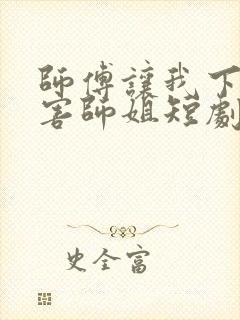 師傅讓我下
害師姐短劇
史全富